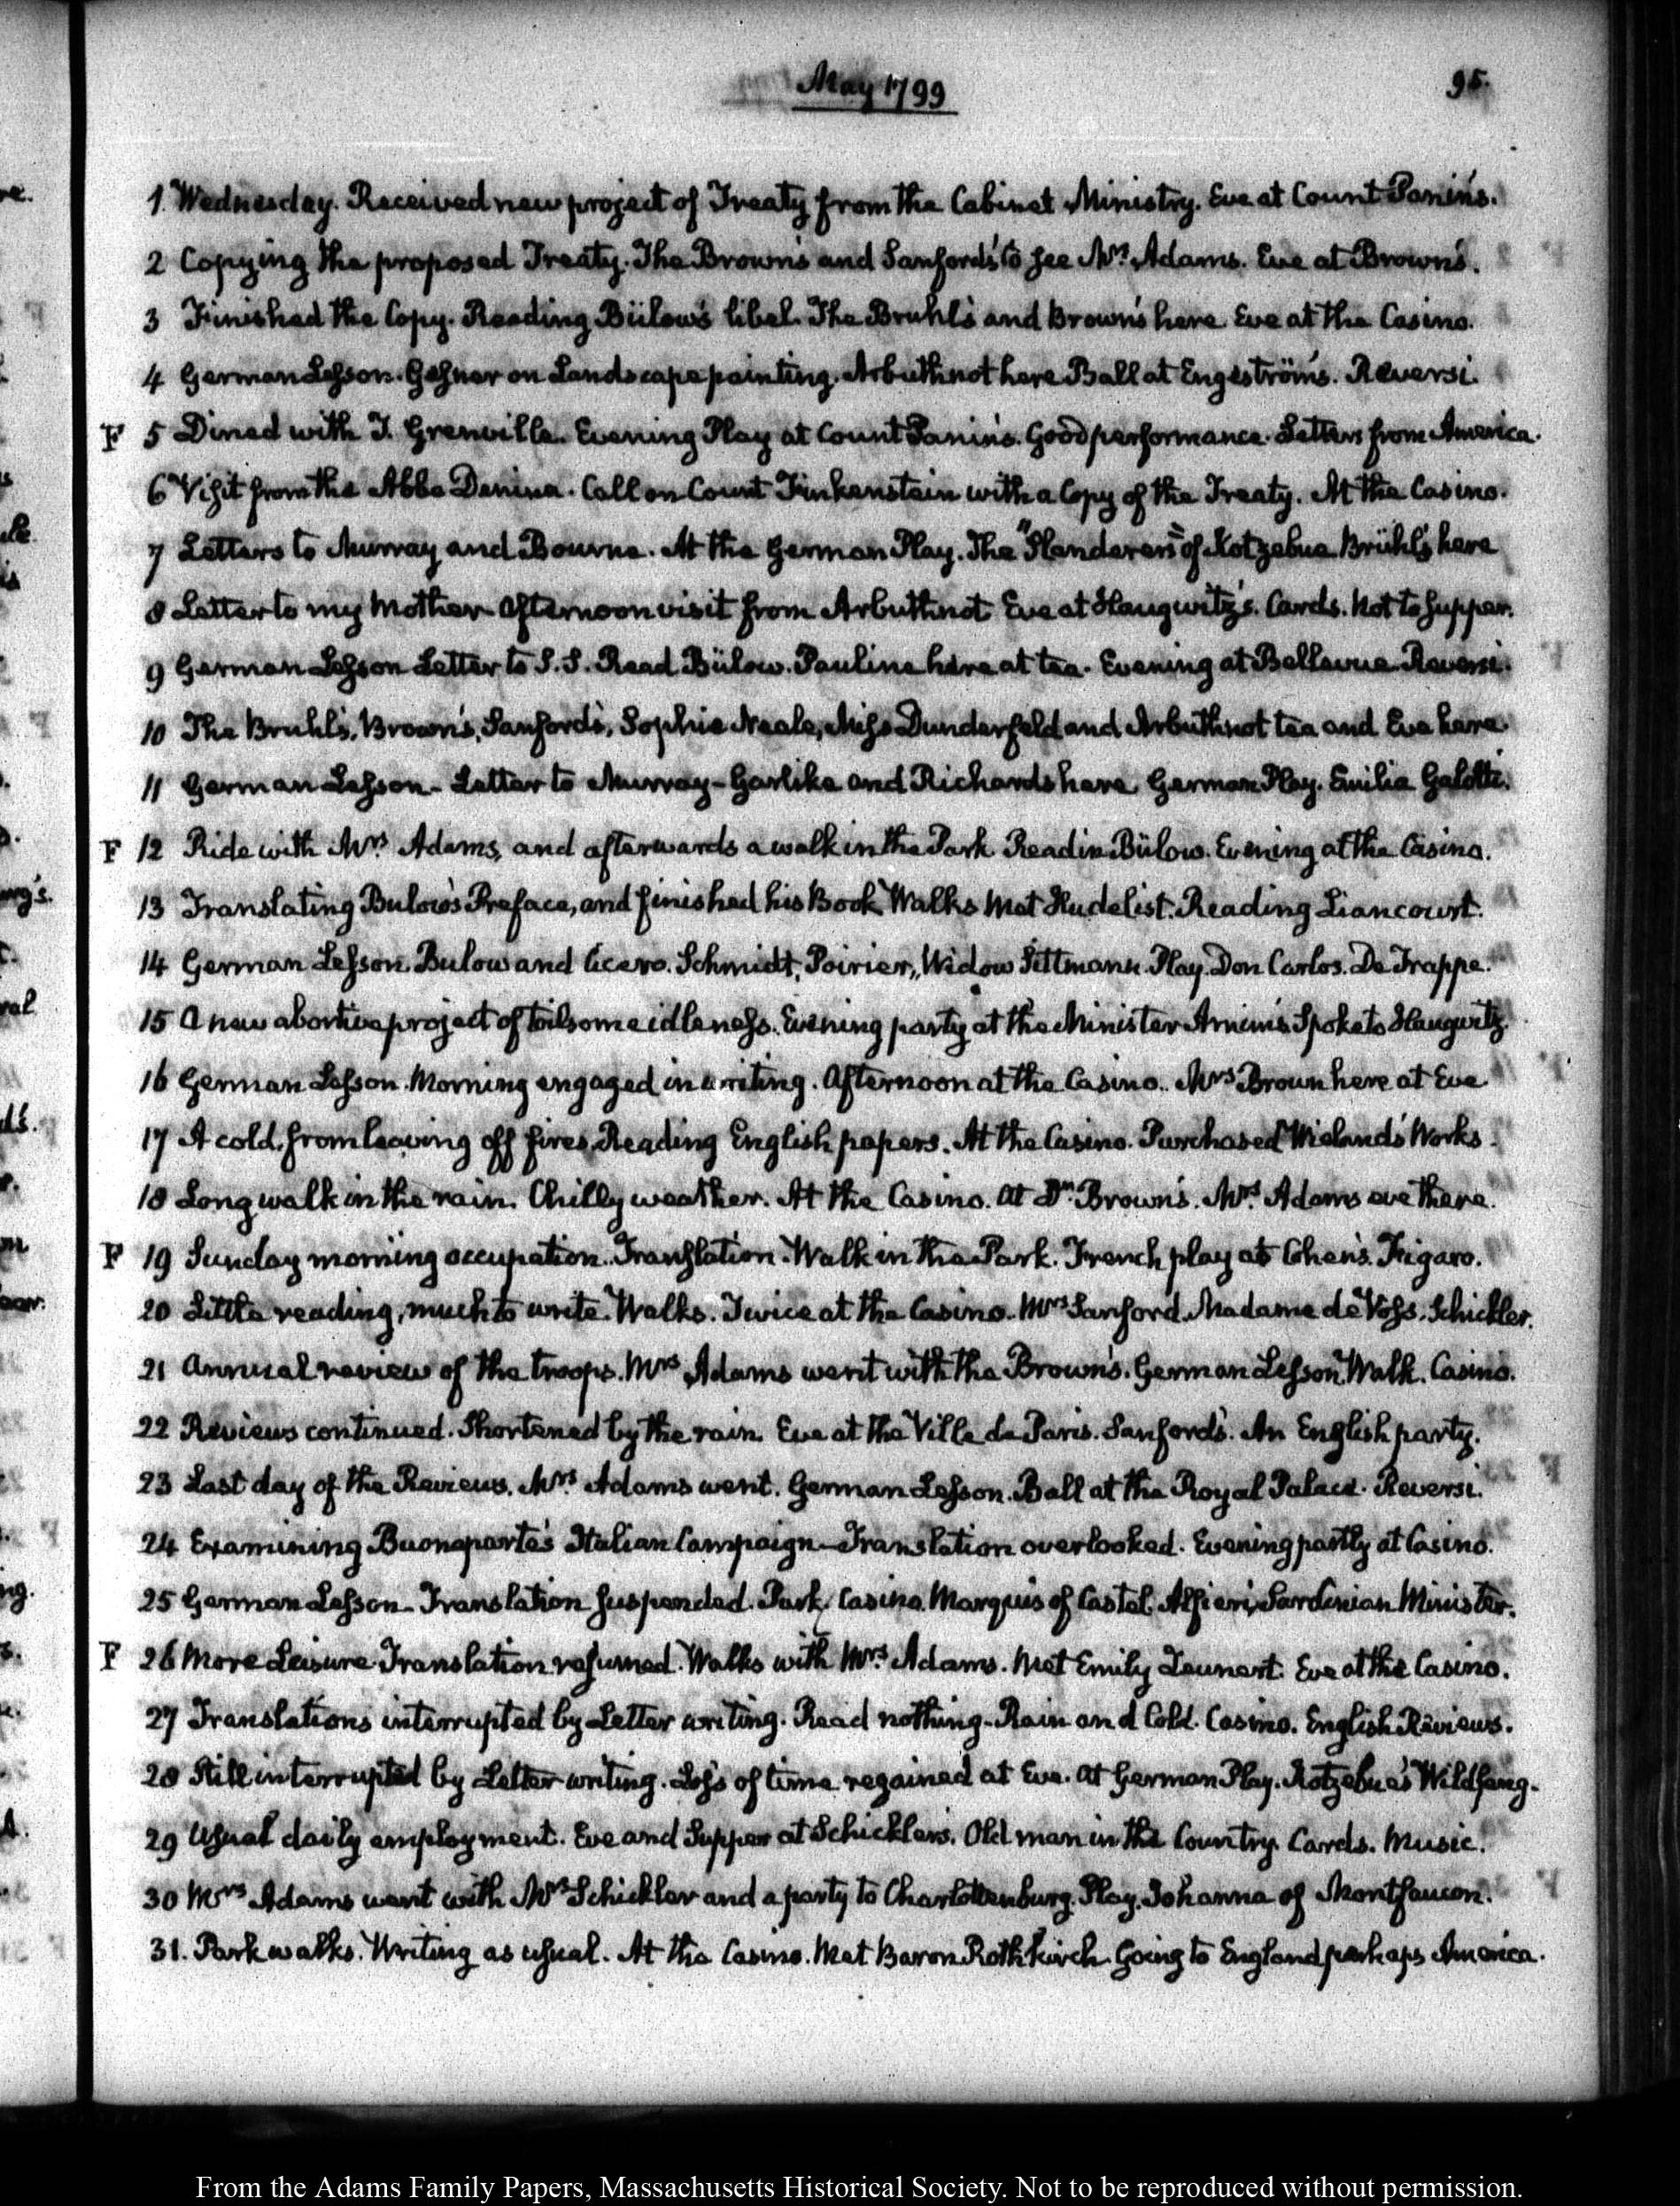 May 1799
95.
1. Wednesday. Received new project of Treaty from the Cabinet Ministry. Eve at Count Panin's.
2 Copying the proposed Treaty. The Brown's and Sanford's to see Mrs. Adams. Eve at Brown's.
3 Finished the Copy. Reading Bülow's libel. The Bruhl's and Brown's here Eve at the Casino.
4 German Lesson. Gesner on Landscape painting. Arbuthnot here Ball at Engeström's. Reversi.
F 5 Dined with T. Grenville. Evening Play at Count Panin's. Good performance. Letters from America.
6 Visit from the Abbe Denina. Call on Count Finkenstein with a Copy of the Treaty. At the Casino.
7 Letters to Murray and Bourne. At the German Play. The "Slanderers" of Kotzebue. Brühl's here
8 Letter to my Mother Afternoon visit from Arbuthnot Eve at Haugwitz's. Cards. Not to supper.
9 German Lesson Letter to S.S. Read Bülow. Pauline here at tea. Evening at Bellevue. Reversi.
10 The Bruhl's, Brown's, Sanford's, Sophie Neale, Miss Dunderfeld and Arbuthnot tea and Eve here
11 German Lesson - Letter to Murray - Garlike and Richards here German Play. Emilia Galotti.
F 12 Ride with Mrs. Adams, and afterwards a walk in the Park. Read in Bülow. Evening at the Casino.
13 Translating Bulow's Preface, and finished his Book Walks Met Hudelist. Reading Liancourt.
14 German Lesson. Bulow and Cicero. Schmidt, Poirier, Widow Sittmann. Play. Don Carlos. De Trappe.
15 A new abortive project of toilsome idleness. Evening party at the Minister Arnim's Spoke to Haugwitz.
16 German Lesson. Morning engaged in writing. Afternoon at the Casino. Mrs Brown here at Eve
17 A cold, from leaving off fires. Reading English papers. At the Casino. Purchased Wieland's Works.
18 Long walk in the rain. Chilly weather. At the Casino. at Dr. Brown's. Mrs. Adams eve there.
F 19 Sunday morning occupation. Translation. Walk in the Park. French play at Cohen's. Figaro.
20 Little reading, much to write. Walks. Twice at the Casino. Mrs Sanford. Madame de Voss. Schickler.
21 Annual review of the troops. Mrs Adams went with the Brown's. German Lesson. Walk. Casino.
22 Reviews continued. Shortened by the rain. Eve at the Ville de Paris. Sanford's. An English party.
23 Last day of the Reviews. Mrs. Adams went. German Lesson. Ball at the Royal Palace. Reversi.
24 Examining Buonaparte's Italian Campaign - Translation overlooked. Evening partly at Casino.
25 German Lesson - Translation suspended. Park, Casino. Marquis of Castel Alfieri, Sardinian Minister.
F 26 More Leisure. Translation resumed. Walks with Mrs. Adams. Met Emily Eve at the Casino.
27 Translations interrupted by Letter writing. Read nothing - Rain and Cold. Casino. English Reviews.
28 Still interrupted by Letter writing. Loss of time regained at Eve. At German Play. Kotzebue's Wildfang.
29 Usual daily employment. Eve and Supper at Schickler's. Old man in the Country. Cards. Music.
30 Mrs Adams went with Mrs Schickler and a party to Charlottenburg. Play. Johanna of Montfaucon.
31. Park walks. Writing as usual. At the Casino. Met Baron Rothkirch. Going to England perhaps America.
From the Adams Family Papers, Massachusetts Historical Society. Not to be reproduced without permission.